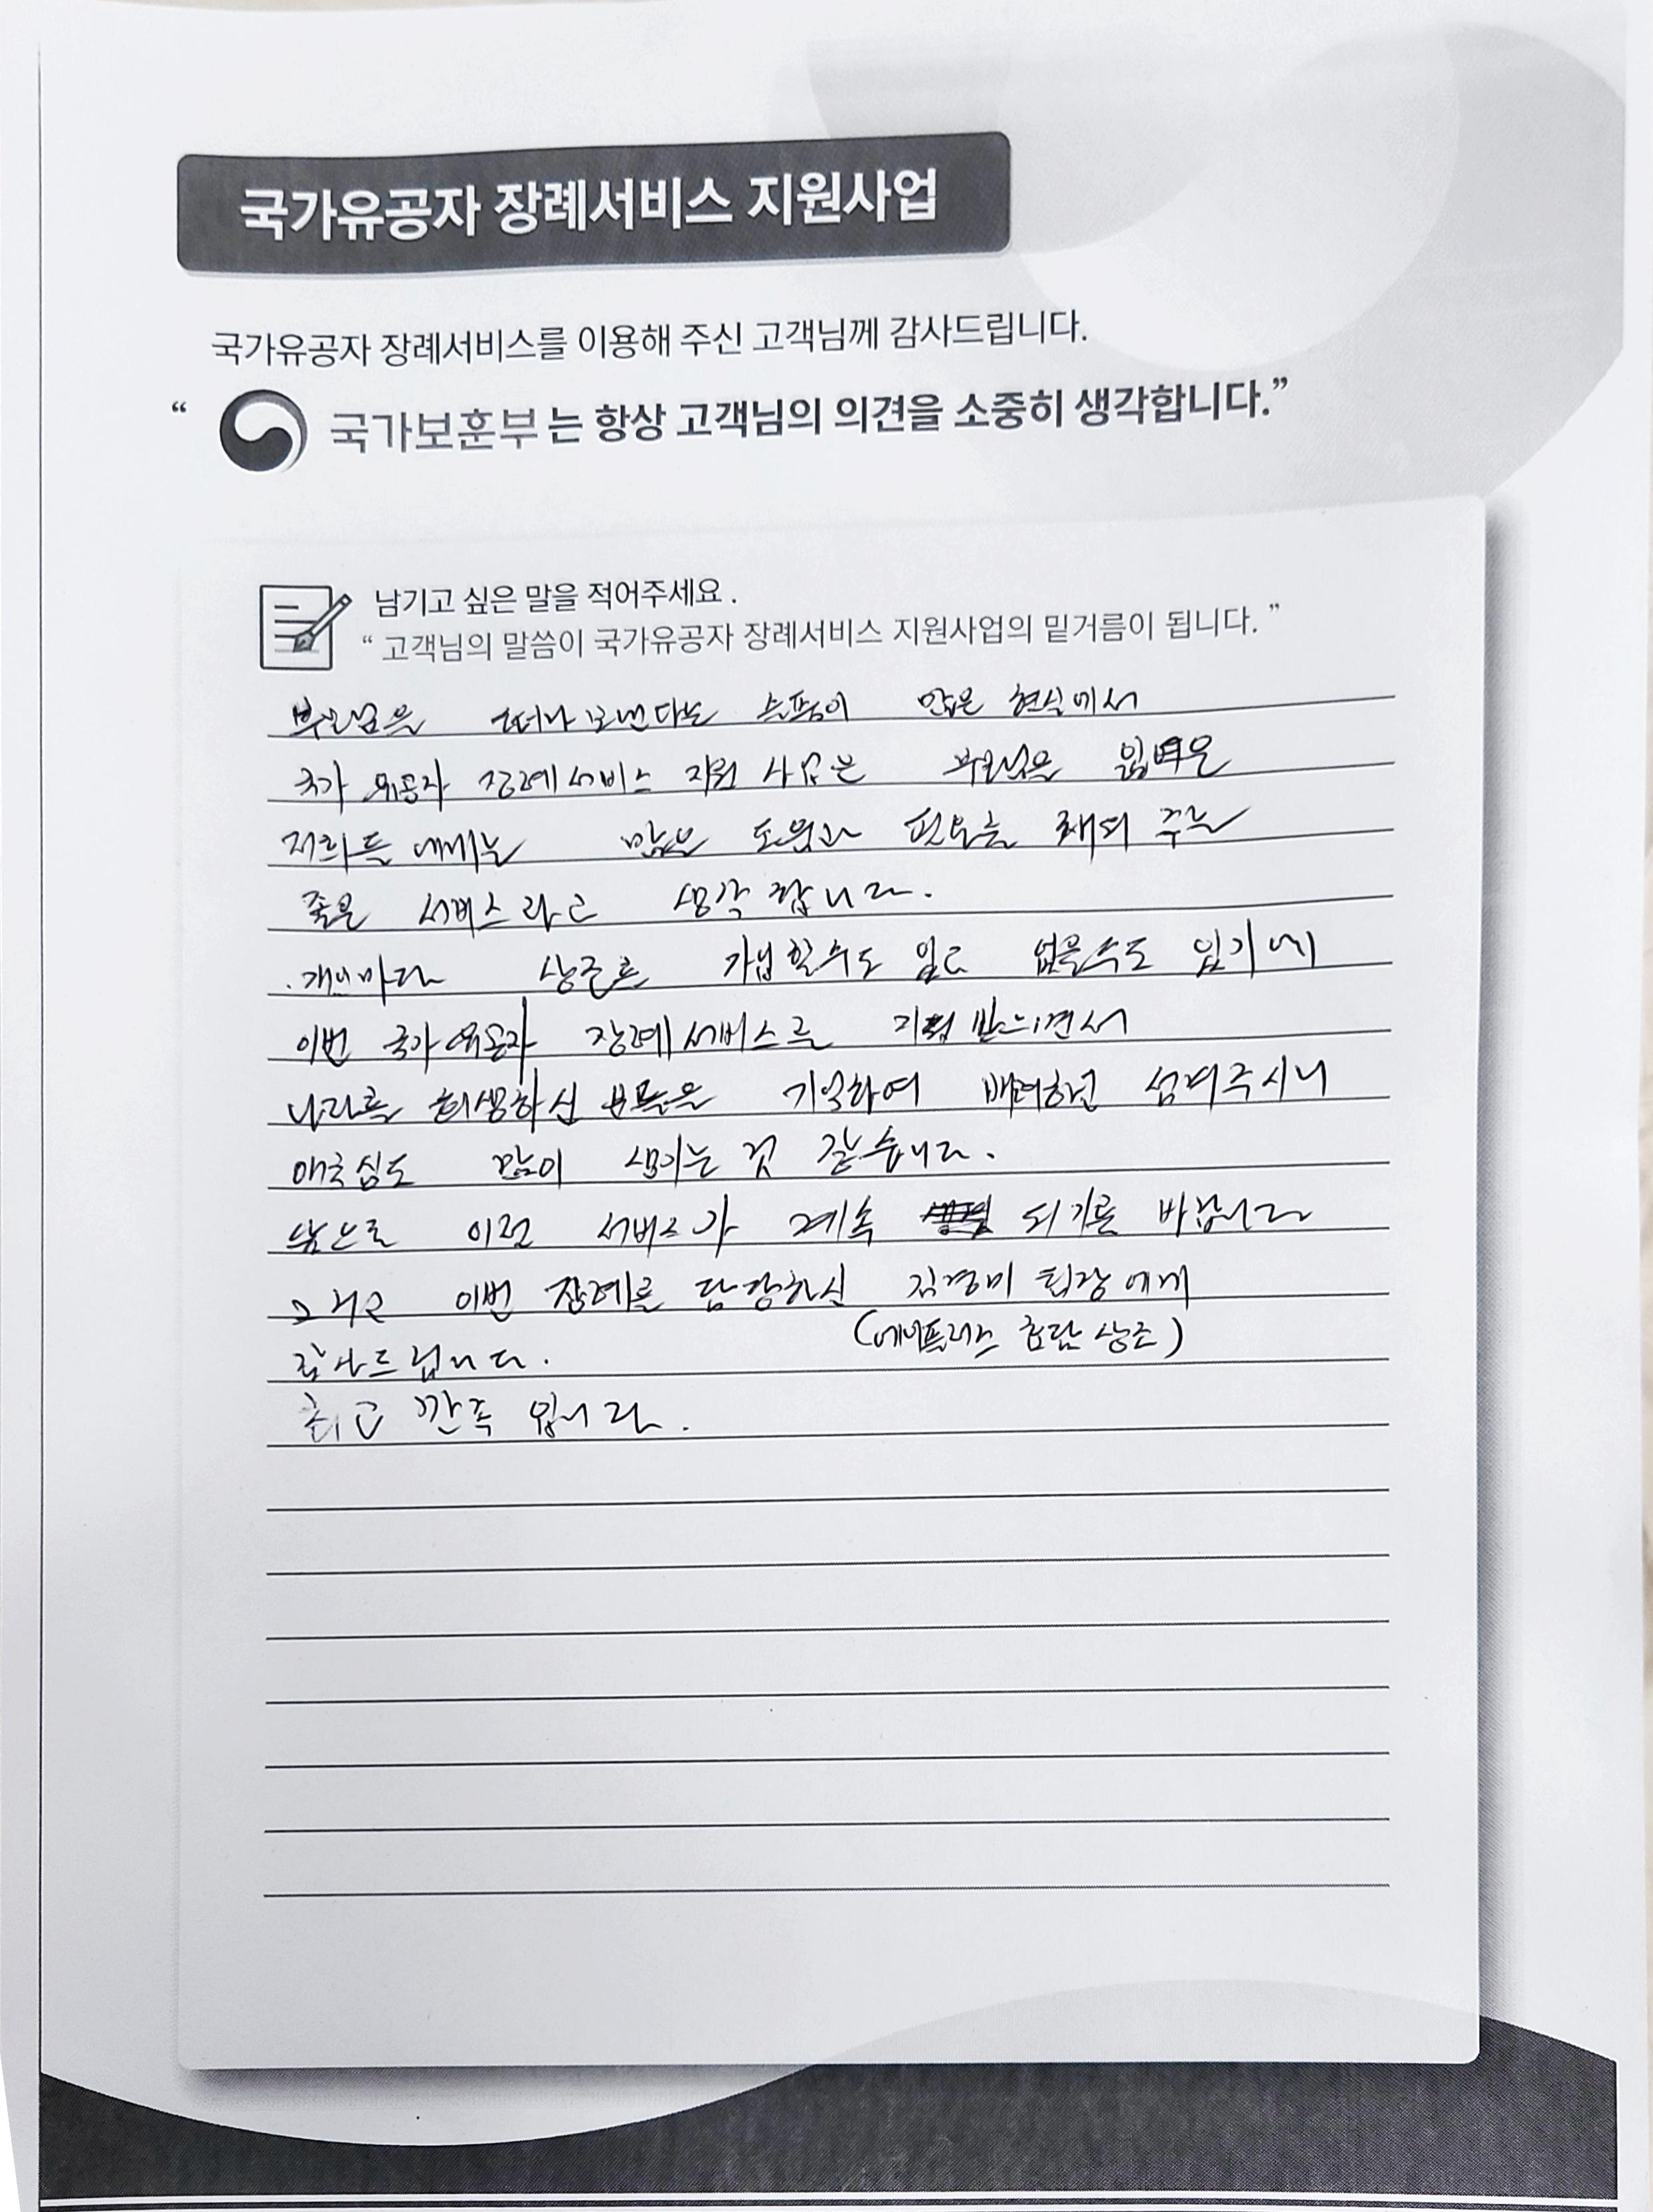 국가유공자 장례서비스 지원사업
국가유공자 장례서비스를 이용해 주신 고객님께 감사드립니다.
“ 국가보훈부 는 항상 고객님의 의견을 소중히 생각합니다.”
남기고 싶은 말을 적어주세요 .
“ 고객님의 말씀이 국가유공자 장례서비스 지원사업의 밑거름이 됩니다. ”
부모님을 떠나 보낸다는 슬픔이 많은 현실에서
국가 유공자 장례서비스 지원 사업은 부모님을
저희들에게는 많은 도움과 필요를 채워 주는
좋은 서비스라고 생각 합니다.
. 개인마다 상조를 가입할수도 있고 없을수도 있기에
이번 국가유공자 장례서비스를 지원 받으면서
나라를 희생하신 분들을 기억하여 섬겨주시니
애국심도 많이 생기는 것 같습니다.
앞으로 이런 서비스가 계속 되기를 바랍니다
그리고 이번 장례를 담당하신 김경미 팀장에게
(에이플러스 효담 상조)
감사드립니다.
최고 만족 입니다.